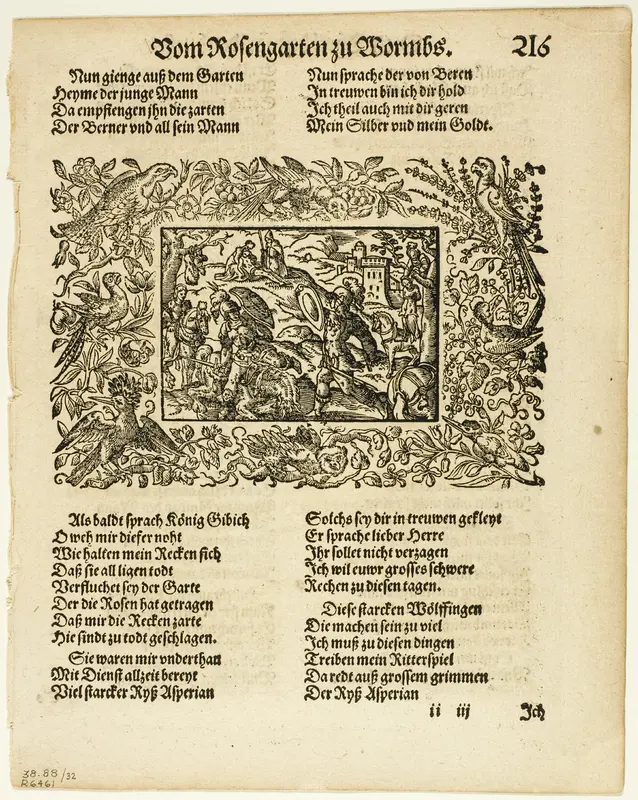 Vom Rosengarten zu Wormbs. 216
Nun gienge auß dem Garten
Heyme der junge Mann
Da empfiengen jhn die zarten
Der Berner vnd all sein Mann
Nun sprache der von Beren
In treuwen bin ich dir hold
Ich theil auch mit dir geren
Mein Silber vnd mein Goldt.
Als baldt sprach König Gibich
O weh mir dieser noht
Wie halten mein Recken sich
Daß sie all ligen todt
Verfluchet sey der Garte
Der die Rosen hat getragen
Daß mir die Recken zarte
Hie sindt zu todt geschlagen.
Sie waren mir vnderthan
Mit Dienst allzeit bereyt
Viel starcker Ryß Asperian
Solchs sey dir in treuwen gekleyt
Er sprache lieber Herre
Ihr sollet nicht verzagen
Ich wil euwr grosses schwere
Rechen zu diesen tagen.
Diese starcken Wölffingen
Die machen sein zu viel
Ich muß zu diesen dingen
Treiben mein Ritterspiel
Da redt auß grossem grimmen
Der Ryß Asperian
ii iij Ich
38.88/32
R6461